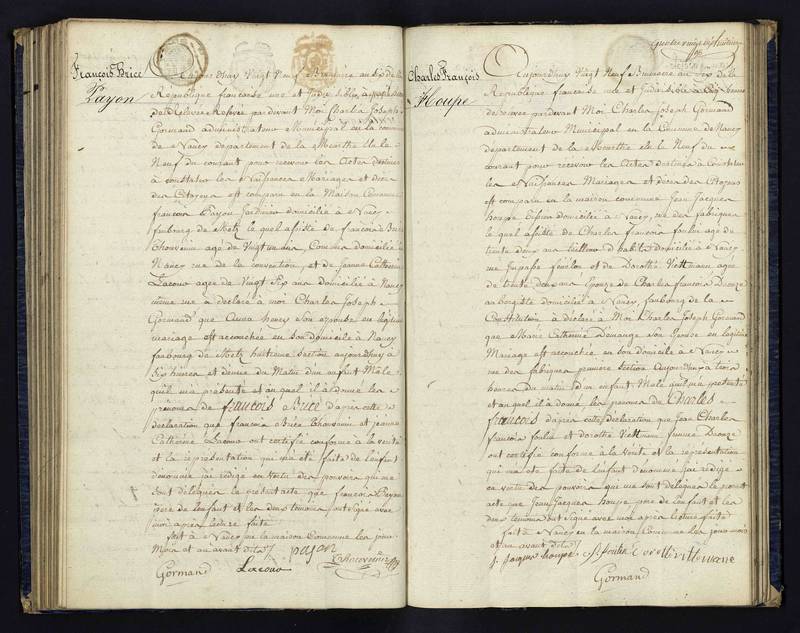 François Brice
Payon
Aujourdhuy Vingt Neuf Brumaire au Six de la
République française une et Indivisible à
de Relevée par devant Moi Charles Joseph
Gormand administrateur Municipal en la commune
de Nancy departement de la Meurthe Elu le
Neuf du courant pour recevoir les Actes destinés
à constater les Naissances Mariages et décès
des Citoyens est comparu en la Maison Commune
françois Payon Jardinier domicilié à Nancy
faubourg de Metz lequel assisté de francois Brice
Chouvenin agé de Vingt un ans, Commis domicilié à
Nancy rue de la convention, et de Jeanne Catherine
Lacour agée de Vingt Six ans domiciliée à Nancy
même rue a déclaré à moi Charles Joseph
Gormand que Anna henry son epouse en légitime
mariage est accouchée en son domicile à Nancy
faubourg de Metz huitieme Section aujourdhuy à
Six heures et demie du Matin d'un enfant Male
qu'il m'a présenté et auquel il a donné les
prenoms de François Brice d'après cette
declaration que francois Brice Chouvenin et jeanne
Catherine Lacour ont certifiée conforme à la verité
et la representation qui m'a été faite de l'enfant
dénommé j'ai rédigé en vertu des pouvoirs qui me
sont délegués le present acte que francois Payon
pere de l'enfant et les deux temoins ont signé avec
moi après lecture faite
fait à Nancy en la maison Commune les jour
Mois et an avant dits
payon
Gormand Lacour
Charles François
Houpe
Aujourdhuy Vingt Neuf Brumaire au Six de la
République française une et Indivisible à
de relevée par devant Moi Charles Joseph Gormand
administrateur Municipal en la Commune de Nancy
departement de la Meurthe elu le Neuf du
courant pour recevoir les Actes destinés à Constater
les Naissances Mariages et décès des Citoyens
est comparu en la maison commune Jean Jacques
houpe domicilié à Nancy, rue des fabriques
le quel assisté de Charles francois foulin agé de
trente deux ans tailleur d'habits domicilié à Nancy
rue et de Dorothé Vittmann agée
de trente deux ans Epouse de Charles francois Drouze
domicilié à Nancy, faubourg de la
Constitution à déclaré à Moi Charles Joseph Gormand
que Marie Catherine Demange son Epouse en legitime
Mariage est accouchée en son domicile à Nancy
rue des fabriques premiere Section Aujourdhuy à trois
heures du matin d'un enfant Male qu'il m'a présenté
et auquel il a donné les prenoms de Charles
François d'après cette déclaration que Jean Charles
francois foulin et dorothé Vittmann femme Drouze
ont certifiée conforme à la verité et la représentation
qui m'a été faite de l'enfant dénommé j'ai rédigé
en vertu des pouvoirs qui me sont délegués le present
acte que Jean Jacques houpe pere de l'enfant et les
deux temoins ont signé avec moi après lecture faite
faite à Nancy en la maison Commune les jour mois
et an avant dits
j. jacques houpe
Gormand